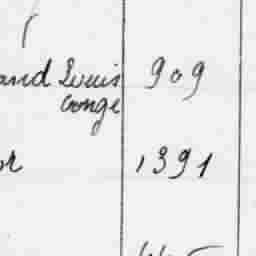 and Louis 909
Congé
or 1391